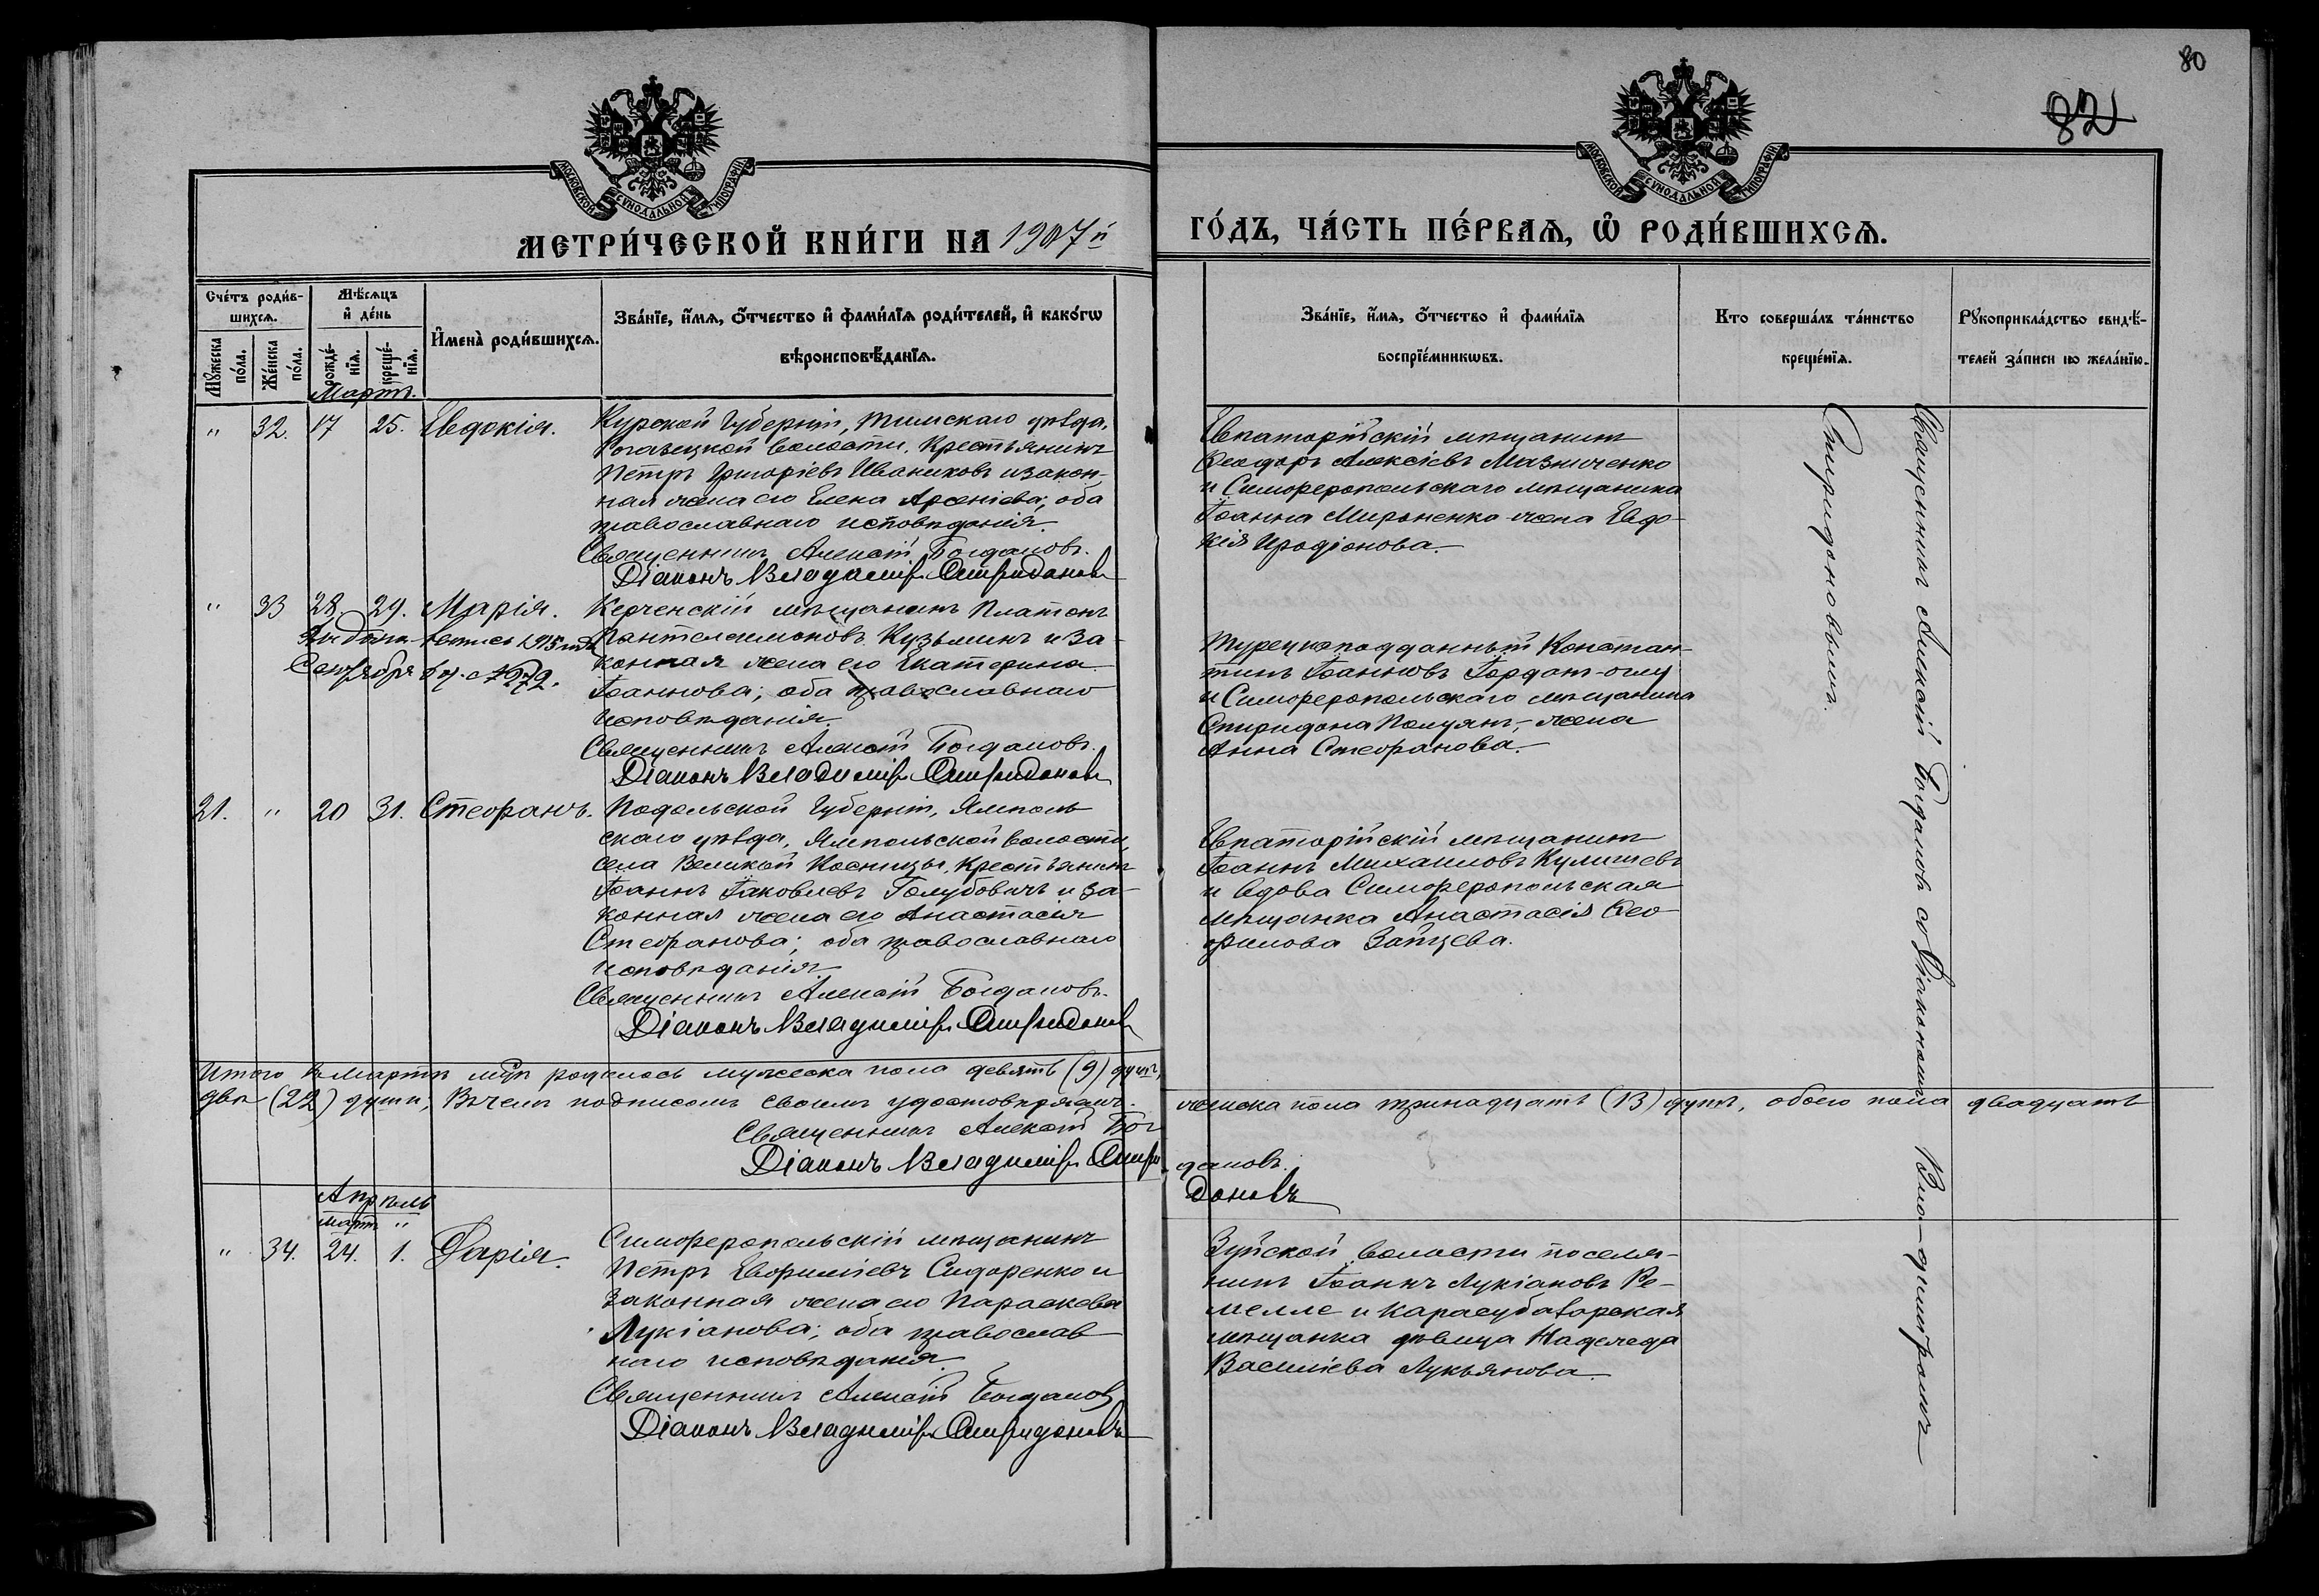 80
82
МОСКОВСКОЙ СѴНОДАЛЬНОЙ ТИПОГРАФІИ
МОСКОВСКОЙ СѴНОДАЛЬНОЙ ТИПОГРАФІИ
МЕТРИ́ЧЕСКОЙ КНИ́ГИ НА 1907й
ГО́ДЪ, ЧА́СТЬ ПЕ́РВАѦ, Ѡ҆ РОДИ́ВШИХСѦ.
Сче́тъ роди́в-
шихсѧ.
Мꙋ́жеска по́ла.
Же́нска по́ла.
Мѣ́сѧцъ
и҆ де́нь
рожде́-
нїѧ.
креще́-
нїѧ.
И҆мена̀ роди́вшихсѧ.
Зва́нїе, и҆́мѧ, ѻ҆́тчество и҆ фами́лїѧ роди́телей, и҆ како́гѡ
вѣроисповѣ́данїѧ.
Зва́нїе, и҆́мѧ, ѻ҆́тчество и҆ фами́лїѧ
воспрїе́мникѡвъ.
Кто соверша́лъ та́инство
креще́нїѧ.
Рꙋкоприкла́дство свидѣ́-
телей за́писи по жела́нїю.
Мартъ.
" 32. 17 25. Евдокія.
Курской Губерніи, Тимскаго уѣзда,
волости, Крестьянинъ
Петръ Григоріевъ Иваниковъ и закон-
ная жена его Елена Арсеніева; оба
православнаго исповѣданія.
Священникъ Алексій Богдановъ.
Діаконъ Владиміръ Спиридоновъ
Евпаторійскій мѣщанинъ
Ѳеодоръ Алексіевъ Мазниченко
и Симферопольскаго мѣщанина
Іоанна Мироненко жена Евдо-
кія Иродіонова.
" 33 28. 29. Марія.
1915 года
Сентября 6
Керченскій мѣщанинъ Платонъ
Пантелеимоновъ Кузьминъ и за-
конная жена его Екатерина
Іоаннова; оба православнаго
исповѣданія.
Священникъ Алексій Богдановъ.
Діаконъ Владиміръ Спиридоновъ
Турецкоподданный Констан-
тинъ Іоанновъ Іордан-оглу
и Симферопольскаго мѣщанина
Спиридона Полуянъ, жена
Анна Стефанова.
21. " 20 31. Стефанъ.
Подольской Губерніи, Ямполь
скаго уѣзда, Ямпольской волости,
села Великой Косницы, Крестьянинъ
Іоаннъ Іаковлевъ Голубовичъ и за-
конная жена его Анастасія
Стефанова; оба православнаго
исповѣданія.
Священникъ Алексій Богдановъ.
Діаконъ Владиміръ Спиридоновъ
Евпаторійскій мѣщанинъ
Іоаннъ Михаиловъ Кулишевъ
и вдова Симферопольская
мѣщанка Анастасія Ѳео
филова Зайцева.
Священникъ Алексій Богдановъ съ Діакономъ Вла-димиромъ
Спиридоновымъ.
Итого въ Мартѣ м-цѣ родилось мужеска пола девять (9) душъ,
женска пола тринадцать (13) душъ, обоего пола двадцать
двѣ (22) души; въ чемъ подписомъ своимъ удостовѣряемъ.
Священникъ Алексій Бог
дановъ.
Діаконъ Владиміръ Спири
доновъ
Апрѣль
Мартъ "
" 34. 24. 1. Дарія.
Симферопольскій мѣщанинъ
Петръ Евфиміевъ Сидоренко и
законная жена его Параскева
Лукіанова; оба православ
наго исповѣданія.
Священникъ Алексій Богдановъ
Діаконъ Владиміръ Спиридоновъ
Зуйской волости поселя-
нинъ Іоаннъ Лукіановъ Ре-
мелле и Карасубазарская
мѣщанка дѣвица Надежда
Василіева Лукьянова.